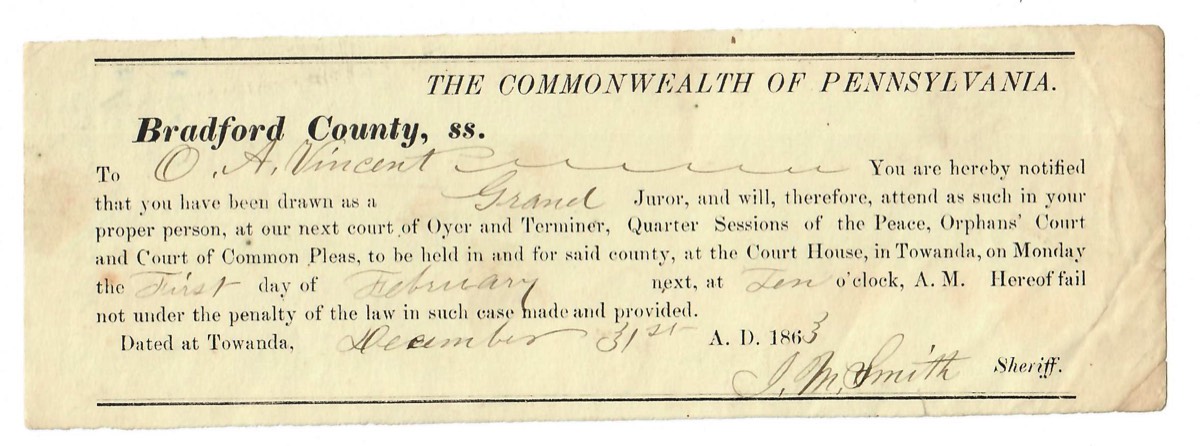 THE COMMONWEALTH OF PENNSYLVANIA.
Bradford County, ss.
To O. A. Vincent You are hereby notified
that you have been drawn as a Grand Juror, and will, therefore, attend as such in your
proper person, at our next court of Oyer and Terminer, Quarter Sessions of the Peace, Orphans' Court
and Court of Common Pleas, to be held in and for said county, at the Court House, in Towanda, on Monday
the First day of February next, at Ten o'clock, A. M. Hereof fail
not under the penalty of the law in such case made and provided.
Dated at Towanda, December 31st A. D. 1863
J. M. Smith Sheriff.